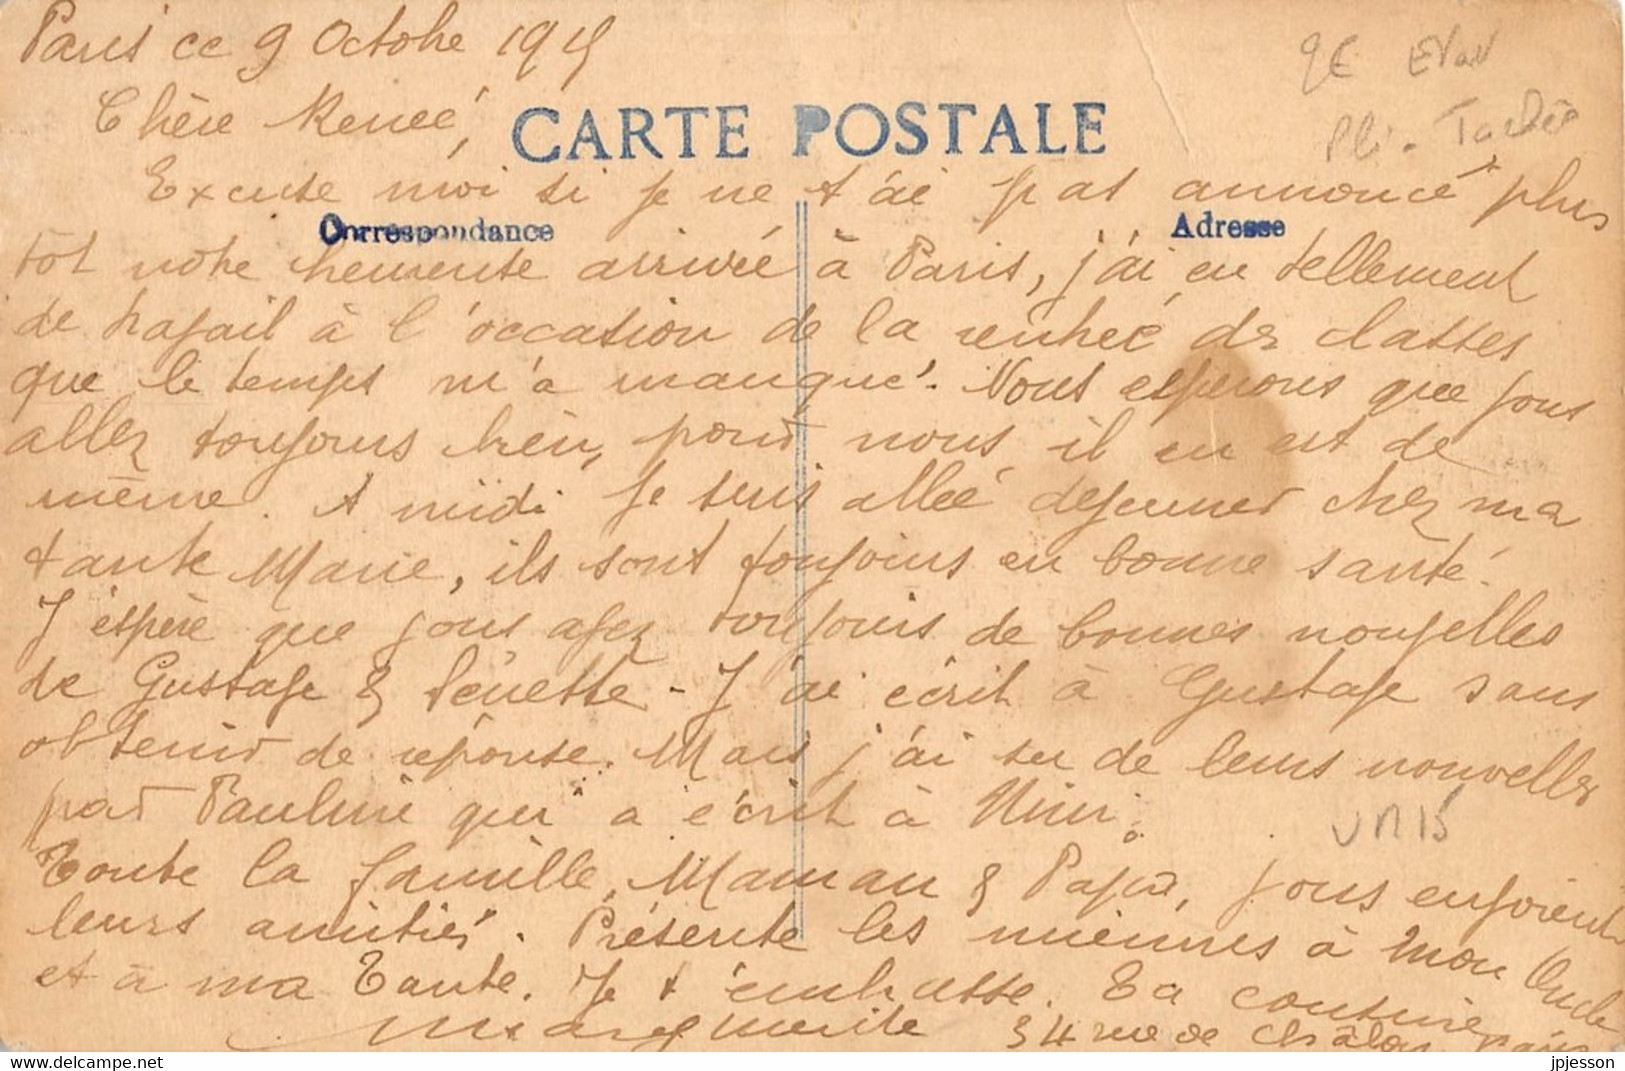 Paris ce 9 Octobre 1915
Chère Reneé,
CARTE POSTALE
2€
Pli - Tachée
Excuse moi si je ne t'ai pas annoncé plus
Correspondance
Adresse
tôt notre heureuse arrivée à Paris, j'ai eu tellement
de travail à l'occasion de la rentrée des classes
que le temps m'a manqué. Nous esperons que vous
allez toujours bien, pour nous il en est de
même. A midi je suis alleé dejeuner chez ma
tante Marie, ils sont toujours en bonne santé.
J'espère que vous avez toujours de bonnes nouvelles
de Gustave & - J'ai écrit à Gustave sans
obtenir de réponse. Mais j'ai su de leurs nouvelles
par Pauline qui a écrit à Nini.
UM15
Toute la famille, Maman & Papa, vous envoient
leurs amitiés. Présente les miennes à mon Oncle
et à ma Tante. Je t'embrasse. Ta cousine
Marguerite 34 rue de Chalon Paris
jpjesson